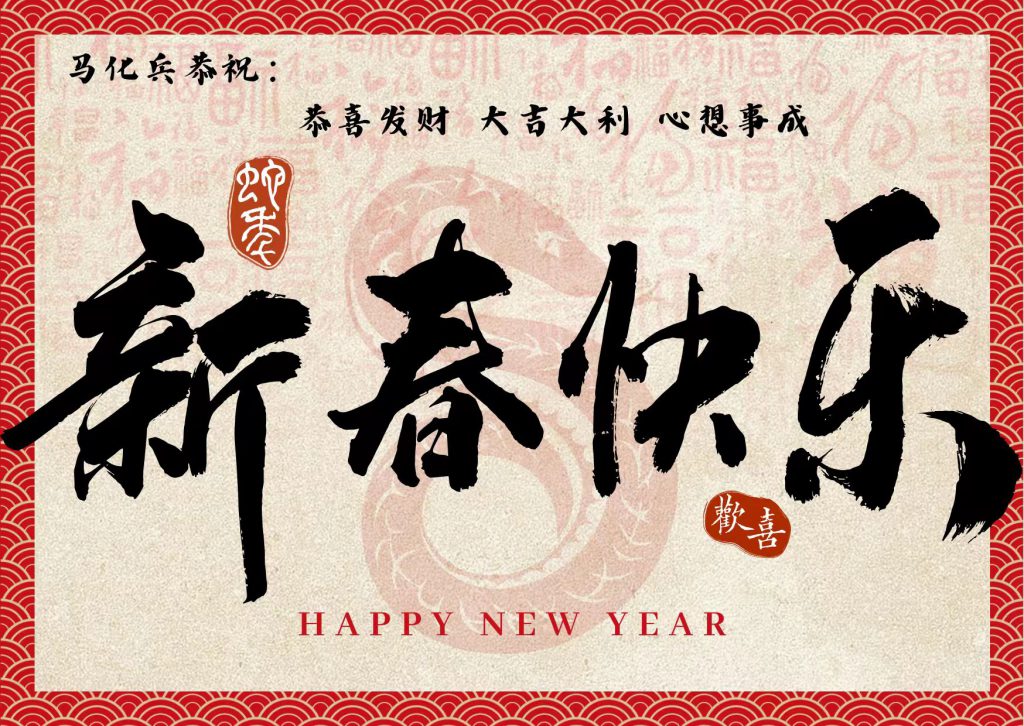 马化兵恭祝：
恭喜发财 大吉大利 心想事成
蛇年
新春快乐
歡喜
HAPPY NEW YEAR